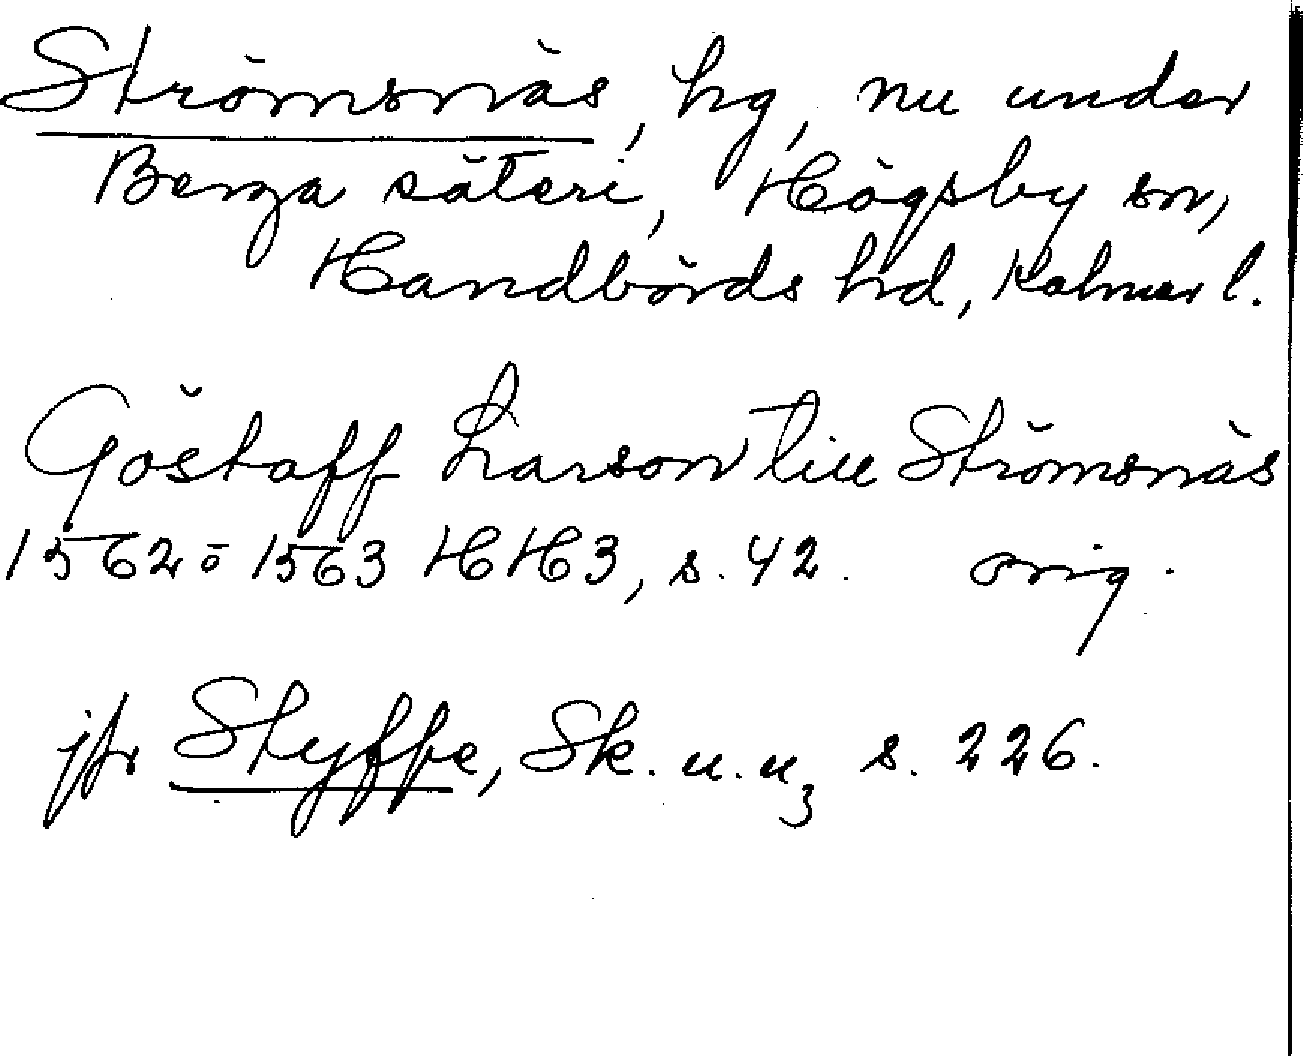 Strömsnäs, hg, nu under
Berga säteri, Högsby sn,
Handbörds hd, Kalmar l.
Göstaff Larson till Strömsnäs
1562 o 1563 HH3, s. 42. orig.
jfr Styffe, Sk. u. u3 s. 226.